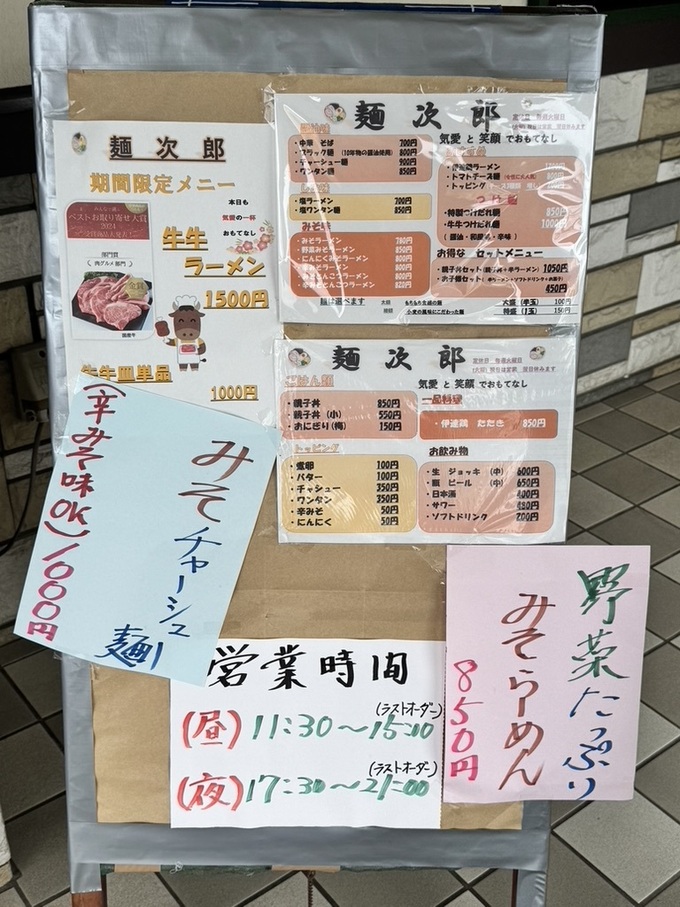 麺次郎
期間限定メニュー
ベストお取り寄せ大賞
2024
部門賞
(肉グルメ部門)
金賞
本日も
気愛の一杯
おもてなし
牛牛
ラーメン
1500円
牛牛皿単品
1000円
麺次郎
気愛と笑顔でおもてなし
・中華そば 700円
・ブラック麺 (10年物の醤油使用) 800円
・チャーシュー麺 900円
・ワンタン麺 850円
・塩ラーメン 700円
・塩ワンタン麺 850円
みそ味
・みそラーメン 780円
・野菜みそラーメン 850円
・にんにくみそラーメン
・トマトチーズ麺
・トッピング
つけ麺
・特製つけだれ麺 850円
・牛牛つけだれ麺 1000円
お得な セットメニュー
・親子丼セット(親子丼+半ラーメン) 1050円
・お子様セット
450円
麺は選べます
太麺 もちもち食感の麺
細麺 小麦の風味にこだわった麺
大盛(半玉) 100円
特盛(1玉) 150円
麺次郎
気愛と笑顔でおもてなし
ごはん類
・親子丼 850円
・親子丼(小) 550円
・おにぎり(梅) 150円
トッピング
・煮卵 100円
・バター 100円
・チャシュー 350円
・ワンタン 350円
・辛みそ 50円
・にんにく 50円
一品料理
・伊達鶏 たたき 850円
お飲み物
・生 ジョッキ (中) 600円
・瓶 ビール (中) 650円
・日本酒 400円
・サワー
・ソフトドリンク 200円
みそチャーシュ
麺
(辛みそ味OK) 1000円
野菜たっぷり
みそらーめん
850円
営業時間
(ラストオーダー)
(昼) 11:30~15:00
(ラストオーダー)
(夜) 17:30~21:00